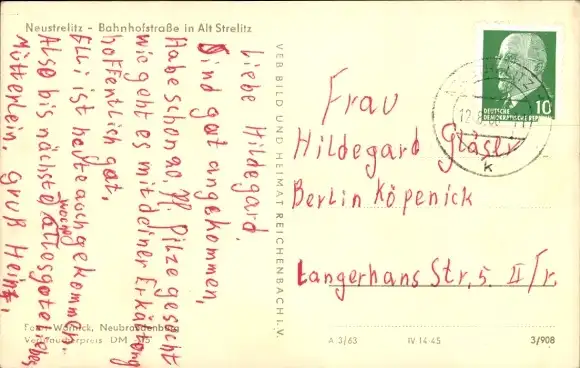 Neustrelitz - Bahnhofstraße in Alt Strelitz
Liebe Hildegard,
Sind gat angekommen,
Habe schon 20 Pf. Pilze gesucht
wie geht es mit deiner Erkältung
hoffentlich gat,
Elli ist heute auch gekommen.
Also bis nächste Woche Alles gate Liebes
Mütterlein, Gruß Heinz,
Foto: Warnick, Neubrandenburg
Verbraucherpreis DM
VEB BILD UND HEIMAT REICHENBACH I. V.
DEUTSCHE
DEMOKRATISCHE REP.
10
k
Frau
Hildegard Gläser
Berlin Köpenick
Langerhans Str, 5 II/r.
A 3/63 IV-14-45 3/908